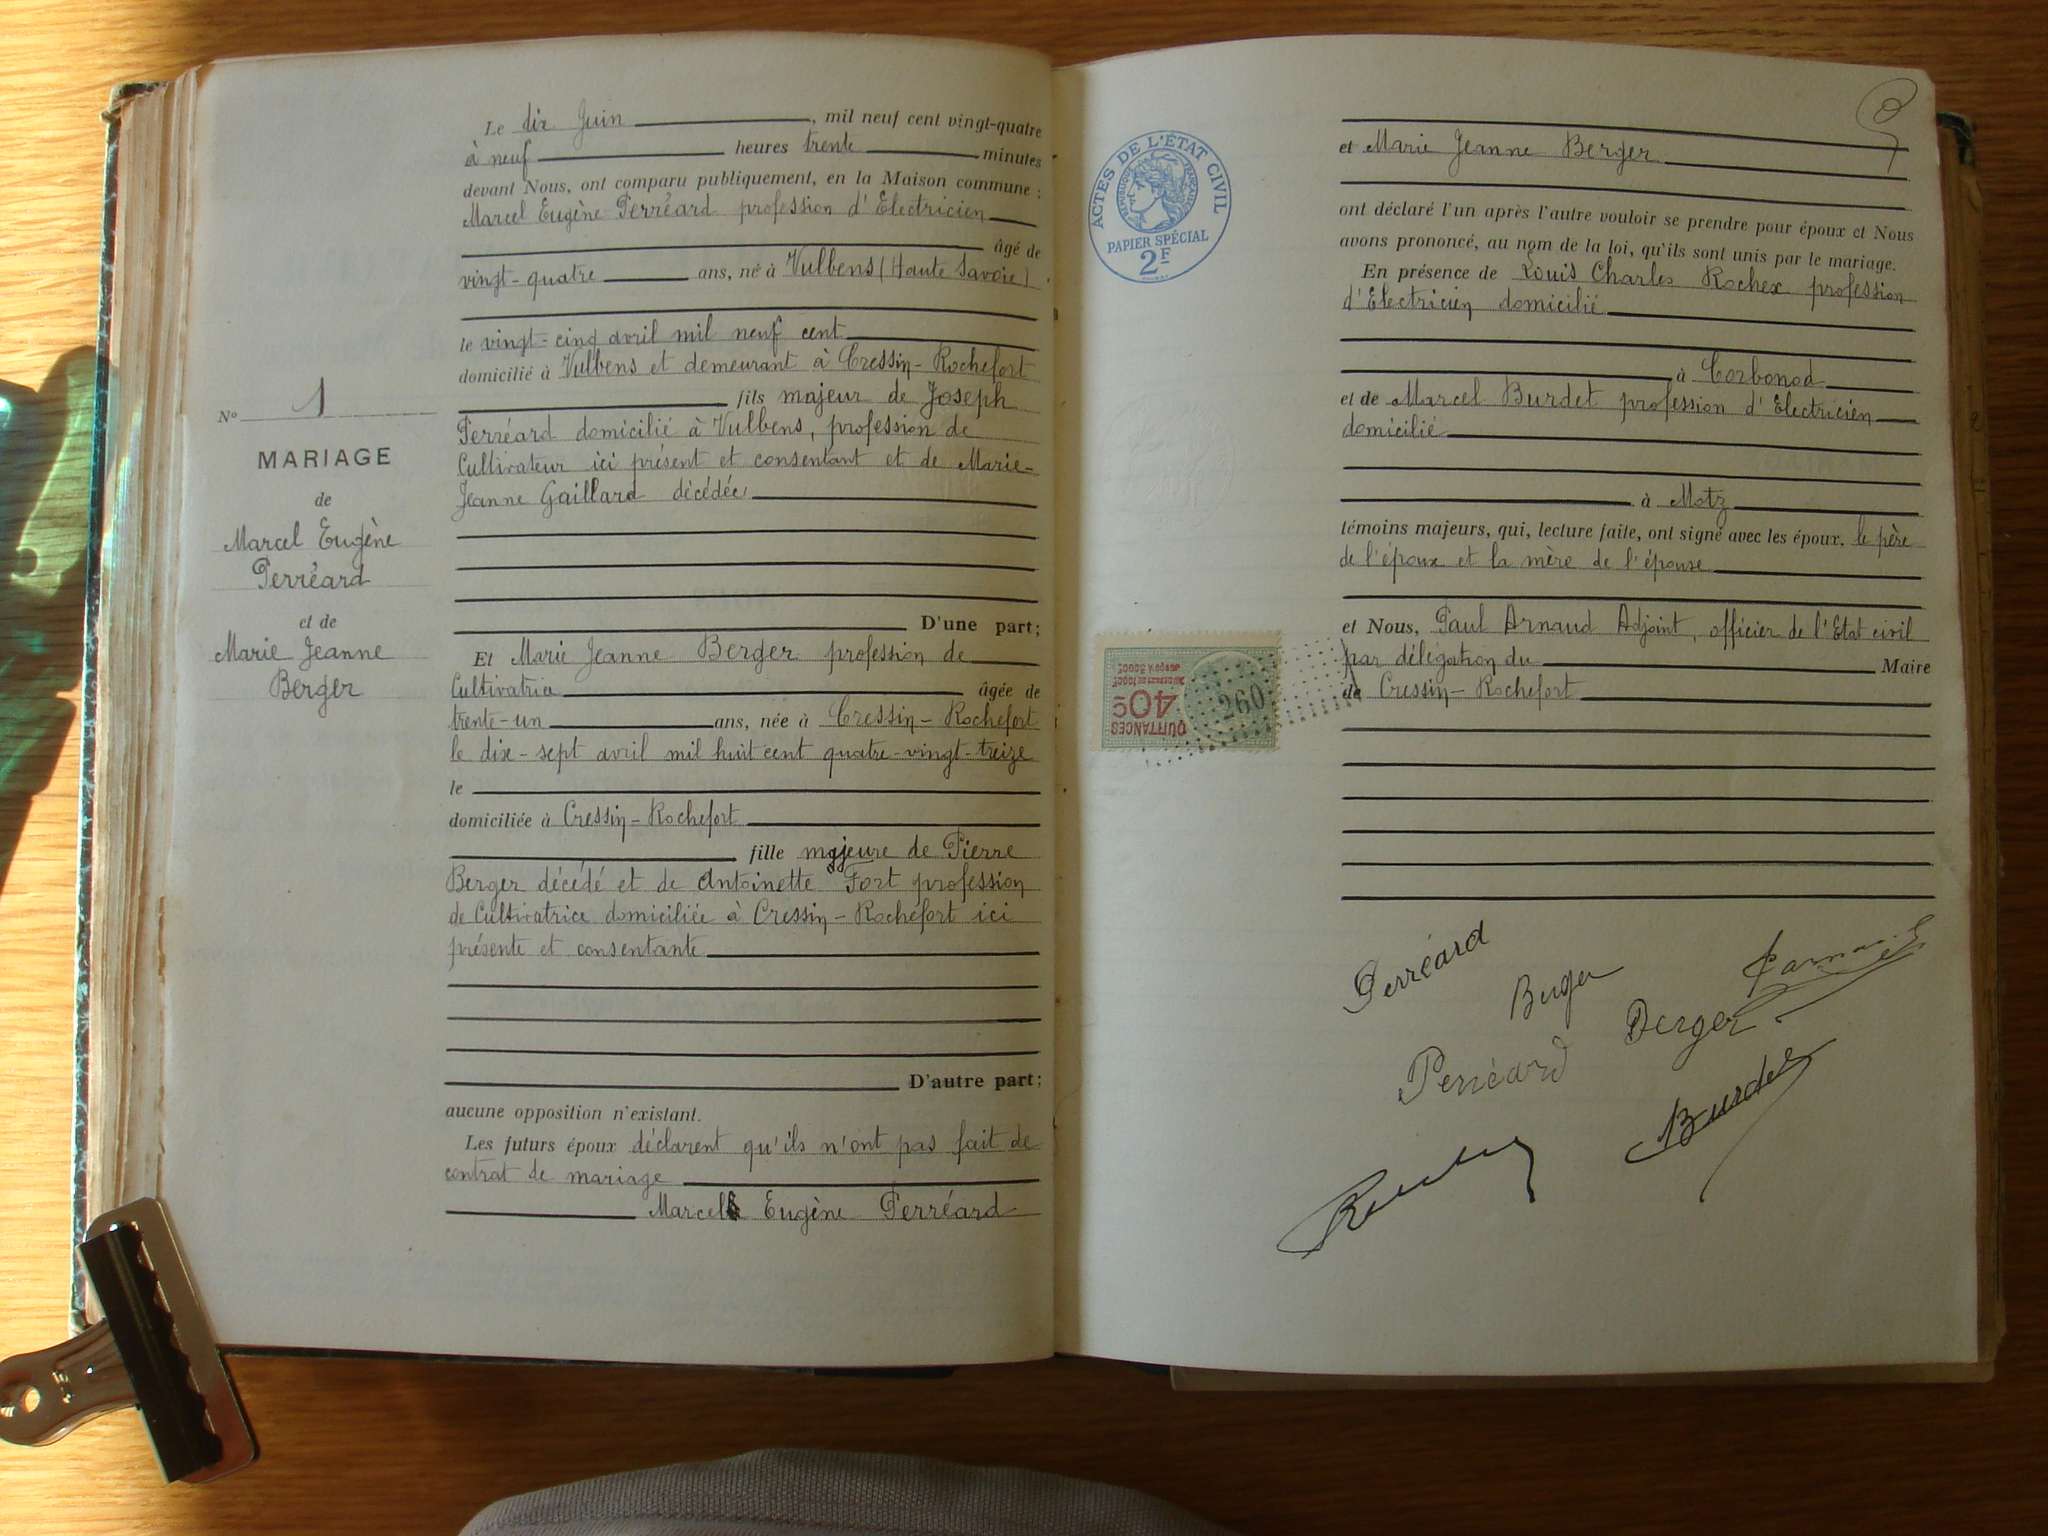 Le dix Juin, mil neuf cent vingt-quatre
à neuf heures trente minutes
devant Nous, ont comparu publiquement, en la Maison commune :
Marcel Eugène Perréard profession d'Electricien
âgé de
vingt-quatre ans, né à Vulbens (Haute Savoie)
le vingt-cinq avril mil neuf cent
domicilié à Vulbens et demeurant à Cressin-Rochefort
fils majeur de Joseph
Perréard domicilié à Vulbens, profession de
Cultivateur ici présent et consentant et de Marie-
Jeanne Gaillard décédée
D'une part;
Et Marie Jeanne Berger profession de
Cultivatrice âgée de
trente-un ans, née à Cressin-Rochefort
le dix-sept avril mil huit cent quatre-vingt-treize
le
domiciliée à Cressin-Rochefort
fille majeure de Pierre
Berger décédé et de Antoinette Fort profession
de Cultivatrice domiciliée à Cressin-Rochefort ici
présente et consentante
D'autre part;
aucune opposition n'existant.
Les futurs époux déclarent qu'ils n'ont pas fait de
contrat de mariage
Marcel Eugène Perréard
N° 1
MARIAGE
de
Marcel Eugène
Perréard
et de
Marie Jeanne
Berger
ACTES DE L'ÉTAT CIVIL
RÉPUBLIQUE FRANÇAISE
PAPIER SPÉCIAL
2F
et Marie Jeanne Berger
ont déclaré l'un après l'autre vouloir se prendre pour époux et Nous
avons prononcé, au nom de la loi, qu'ils sont unis par le mariage.
En présence de Louis Charles Rochex profession
d'Electricien domicilié
à Corbonod
et de Marcel Burdet profession d'Electricien
domicilié
à Motz
témoins majeurs, qui, lecture faite, ont signé avec les époux, le père
de l'époux et la mère de l'épouse
et Nous, Paul Arnaud Adjoint, officier de l'Etat civil
par délégation du Maire
de Cressin-Rochefort
QUITTANCES
40c
260
Perréard
Berger
Perréard
Berger
Burdet